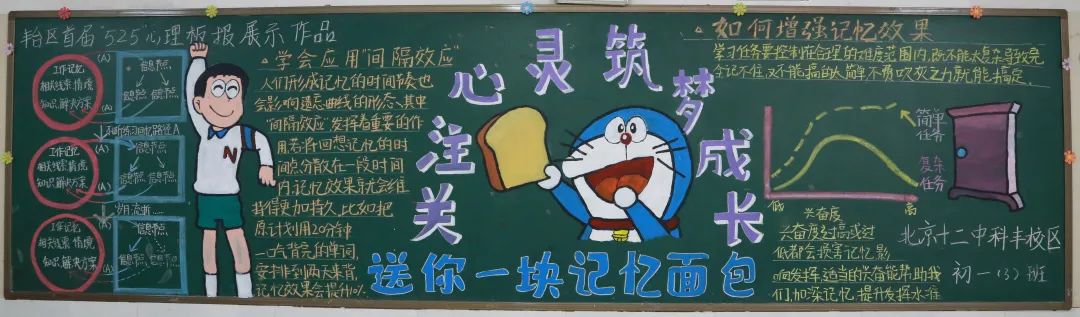 丰台区首届"525心理板报展示作品
工作记忆
相关线索 情境
知识 解决方案
(A)
(A)
信息节点
信息节点 信息节点
不断练习回忆路径A
工作记忆
相关线索 情境
知识 解决方案
(A)
(A)
信息节点
信息节点 信息节点
岁月流逝……
工作记忆
相关线索 情境
知识 解决方案
(A)
(A)
信息节点
信息节点
N
学会应用"间隔效应"
人们形成记忆的时间节奏也
会影响遗忘曲线的形态、其中
"间隔效应"发挥着重要的作
用若将回想记忆的时
间段分散在一段时间
内,记忆效果就会维
持得更加持久,比如把
原计划用20分钟
一口气背完的单词,
安排到两天来背,
记忆效果会提升
关注心灵筑梦成长
送你一块记忆面包
如何增强记忆效果
学习任务要控制在合理的难度范围内,既不能太复杂导致完
全记不住,又不能搞的太简单不费吹灰之力就能搞定.
简单
任务
复杂
任务
低
兴奋度
高
兴奋度过高或过
低都会损害记忆影
响发挥,适当的兴奋能帮助我
们,加深记忆,提升发挥水准
北京十二中科丰校区
初一(3)班